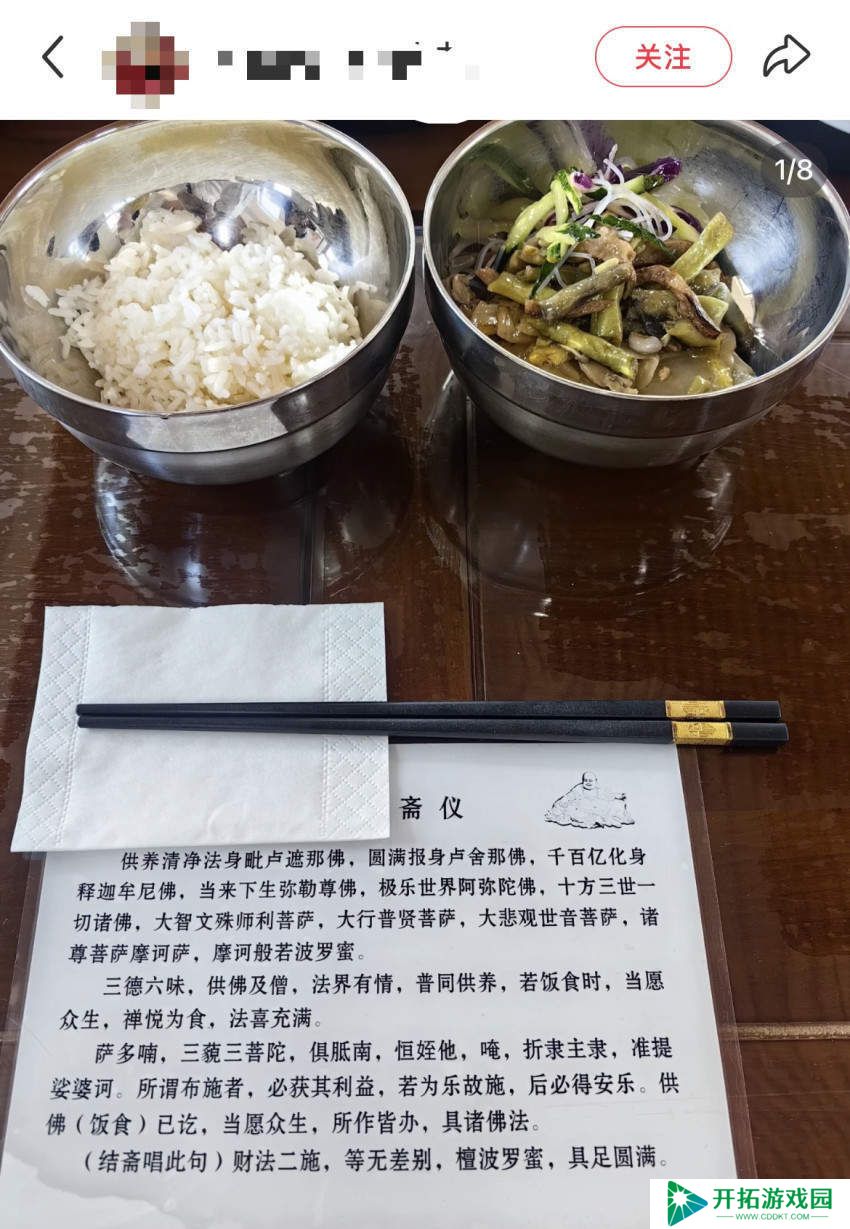 关注
1/8
斋仪
供养清净法身毗卢遮那佛，圆满报身卢舍那佛，千百亿化身
释迦牟尼佛，当来下生弥勒尊佛，极乐世界阿弥陀佛，十方三世一
切诸佛，大智文殊师利菩萨，大行普贤菩萨，大悲观世音菩萨，诸
尊菩萨摩诃萨，摩诃般若波罗蜜。
三德六味，供佛及僧，法界有情，普同供养，若饭食时，当愿
众生，禅悦为食，法喜充满。
萨多喃，三藐三菩陀，俱胝南，恒姪他，唵，折隶主隶，准提
娑婆诃。所谓布施者，必获其利益，若为乐故施，后必得安乐。供
佛（饭食）已讫，当愿众生，所作皆办，具诸佛法。
（结斋唱此句）财法二施，等无差别，檀波罗蜜，具足圆满。
开拓游戏园
WWW.CDDKT.COM